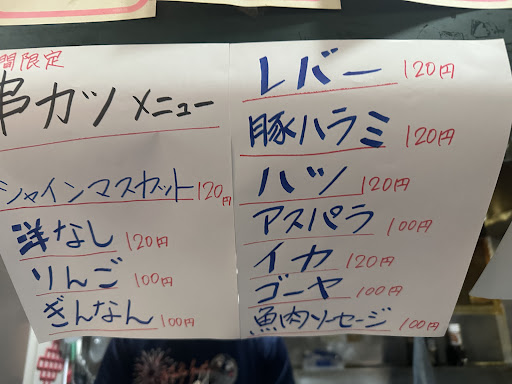 間限定
串カツメニュー
シャインマスカット 120円
洋なし 120円
りんご 100円
ぎんなん 100円
レバー 120円
豚ハラミ 120円
ハツ 120円
アスパラ 100円
イカ 120円
ゴーヤ 100円
魚肉ソーセージ 100円